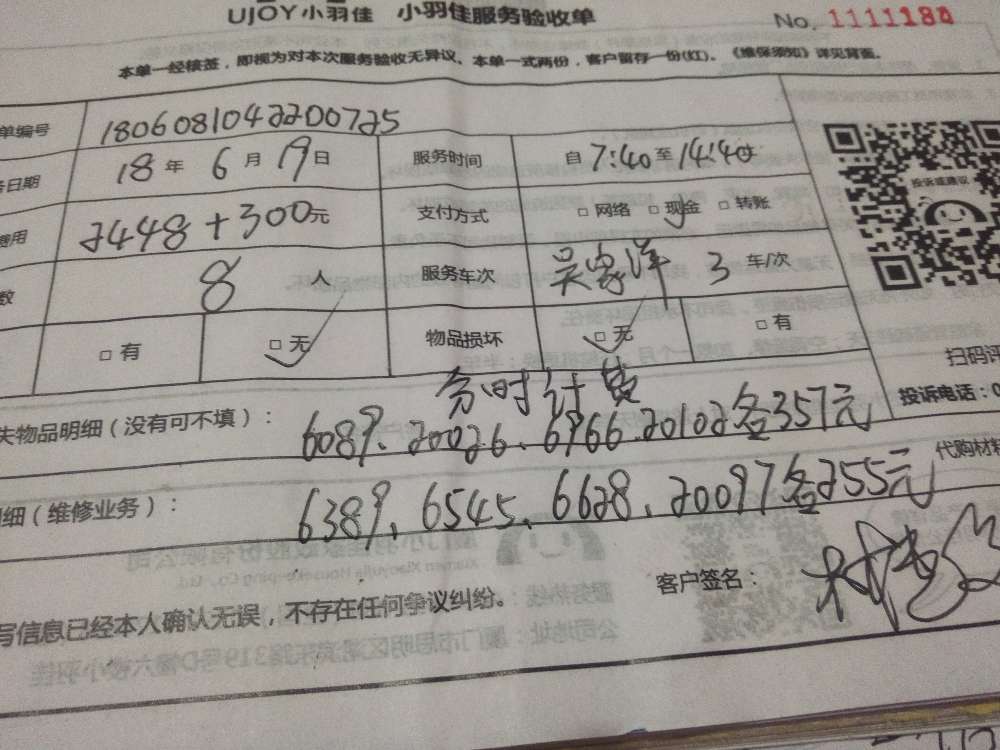 UJOY小羽佳 小羽佳服务验收单 No. 1111184
本单一经核签，即视为对本次服务验收无异议。本单一式两份，客户留存一份(红)。《维保须知》详见背面。
单编号 1806081042200725
务日期 18 年 6 月 19 日 服务时间 自 7:40 至 14:40 时
费用 2448+300元 支付方式 □ 网络 □ 现金 □ 转账
数 8 人 服务车次 吴家洋 3 车/次
□ 有 □ 无 物品损坏 □ 无 □ 有
投诉或建议
扫码评
投诉电话：0
分时计费
失物品明细（没有可不填）： 6089、20026、6966、20102各357元
代购材料
细（维修业务）： 6389、6545、6628、20097各255元
客户签名：
写信息已经本人确认无误，不存在任何争议纠纷。